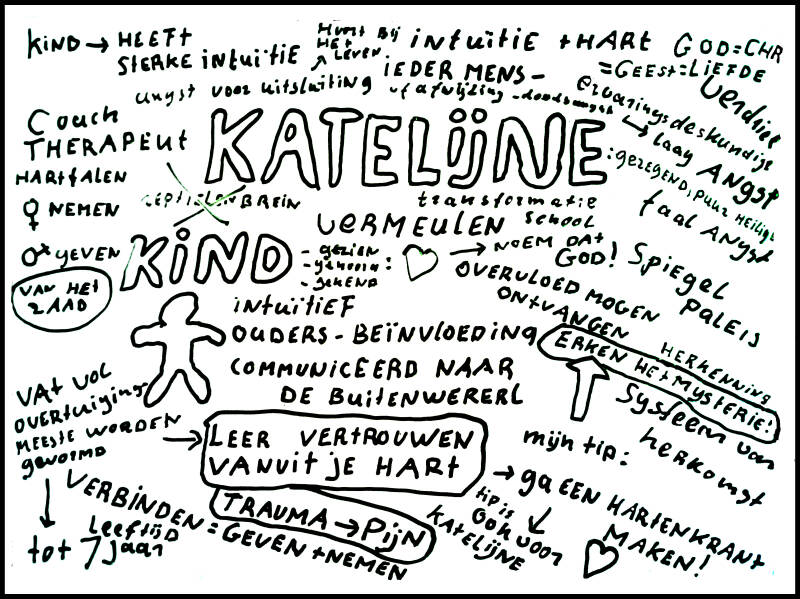 KIND → HEEFT
STERKE INTUÏTIE
HOORT BIJ
HET
LEVEN
INTUÏTIE + HART
GOD=CHR
=GEEST=LIEFDE
IEDER MENS -
angst voor uitsluiting
of afwijzing - doodsangst
ervaringsdeskundige
verdriet
laag
Angst
: gezegend, puur heilig
faal Angst
Coach
THERAPEUT
HARTFALEN
♀ NEMEN
♂ GEVEN
VAN HET
ZAAD
KATELIJNE
REPTIELENBREIN
VERMEULEN
transformatie
school
KIND
- gezien
- gehoord :
- gekend
→ NOEM DAT
GOD!
Spiegel
paleis
OVERVLOED MOGEN
ONTVANGEN
HERKENNING
ERKEN HET MYSTERIE!
INTUÏTIEF
OUDERS - BEÏNVLOEDING
COMMUNICEERD NAAR
DE BUITENWERERL
Systeem van
herkomst
VAT VOL
OVERTUIGING
MEESTE WORDEN
gevormd
→
LEER VERTROUWEN
VANUIT JE HART
mijn tip:
→ ga EEN HARTENKRANT
MAKEN!
tip is
OOK voor
KATELIJNE
TRAUMA → PIJN
VERBINDEN = GEVEN + NEMEN
Leeftijd
tot 7 jaar